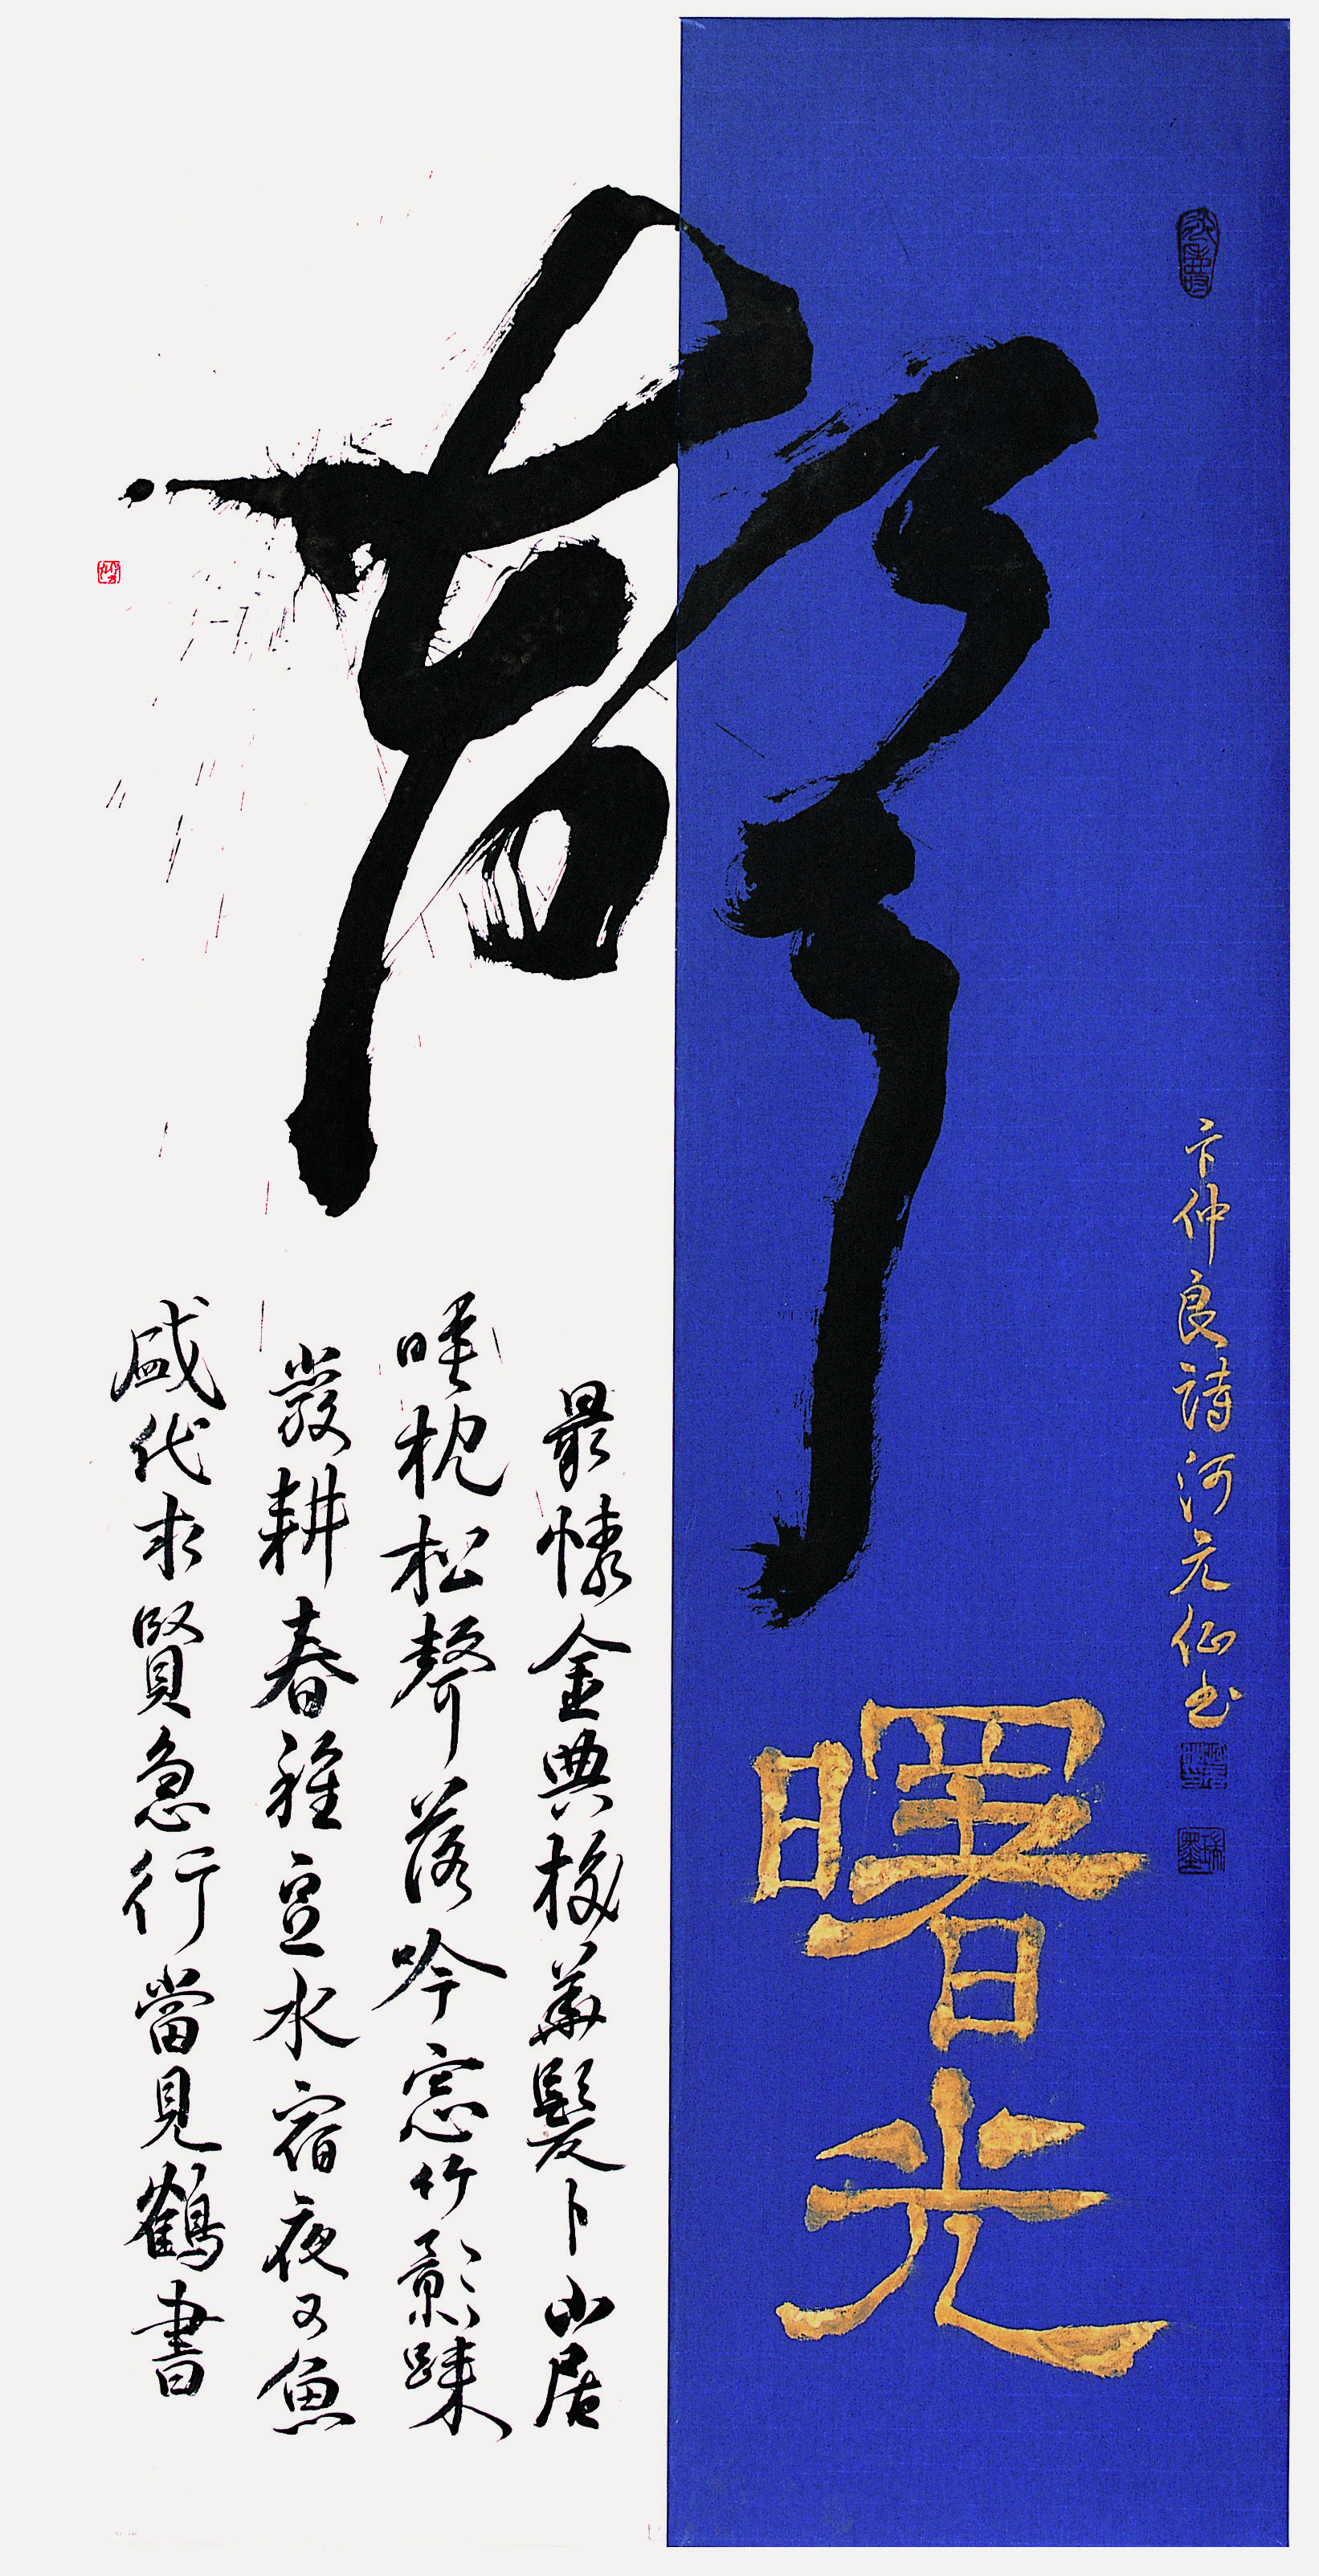 卞仲良詩 河元仙书
曙光
最憐金典校華髮卜山居
睡枕松聲落吟窓竹影踈
巖耕春種豆水宿夜叉魚
盛代求賢急行當見鶴書